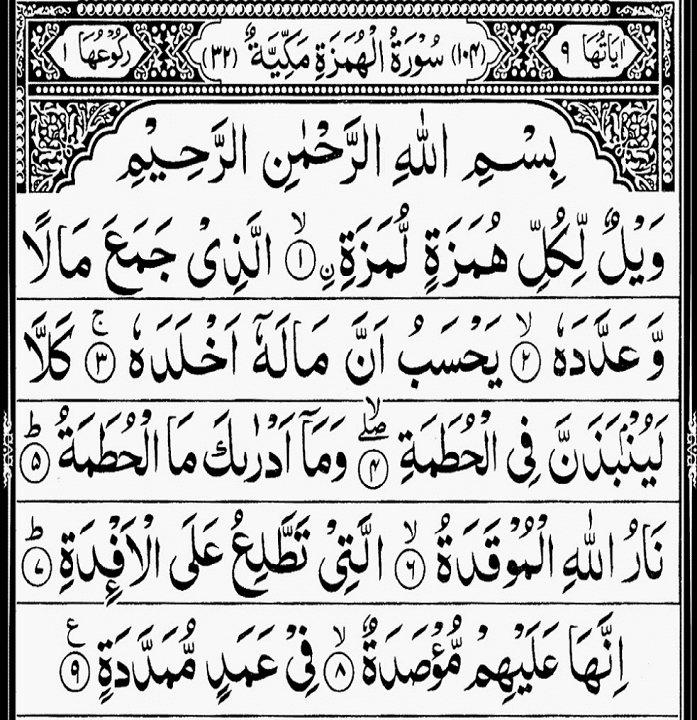 اٰيَاتُهَا ٩ (١٠٤) سُوْرَةُ الْهُمَزَةِ مَكِّيَّةٌ (٣٢) رُكُوْعُهَا ١
بِسْمِ اللّٰهِ الرَّحْمٰنِ الرَّحِيْمِ
وَيْلٌ لِّكُلِّ هُمَزَةٍ لُّمَزَةِ ۙ﴿١﴾ نِ الَّذِىْ جَمَعَ مَالًا
وَّ عَدَّدَهٗ ۙ﴿٢﴾ يَحْسَبُ اَنَّ مَالَهٗۤ اَخْلَدَهٗ ۚ﴿٣﴾ كَلَّا
لَيُنْۢبَذَنَّ فِى الْحُطَمَةِ ۖۙ﴿٤﴾ وَمَاۤ اَدْرٰىكَ مَا الْحُطَمَةُ ؕ﴿٥﴾
نَارُ اللّٰهِ الْمُوْقَدَةُ ۙ﴿٦﴾ الَّتِىْ تَطَّلِعُ عَلَى الْاَفْـِٕدَةِ ؕ﴿٧﴾
اِنَّهَا عَلَيْهِمْ مُّؤْصَدَةٌ ۙ﴿٨﴾ فِىْ عَمَدٍ مُّمَدَّدَةٍ ﴿٩﴾ ع